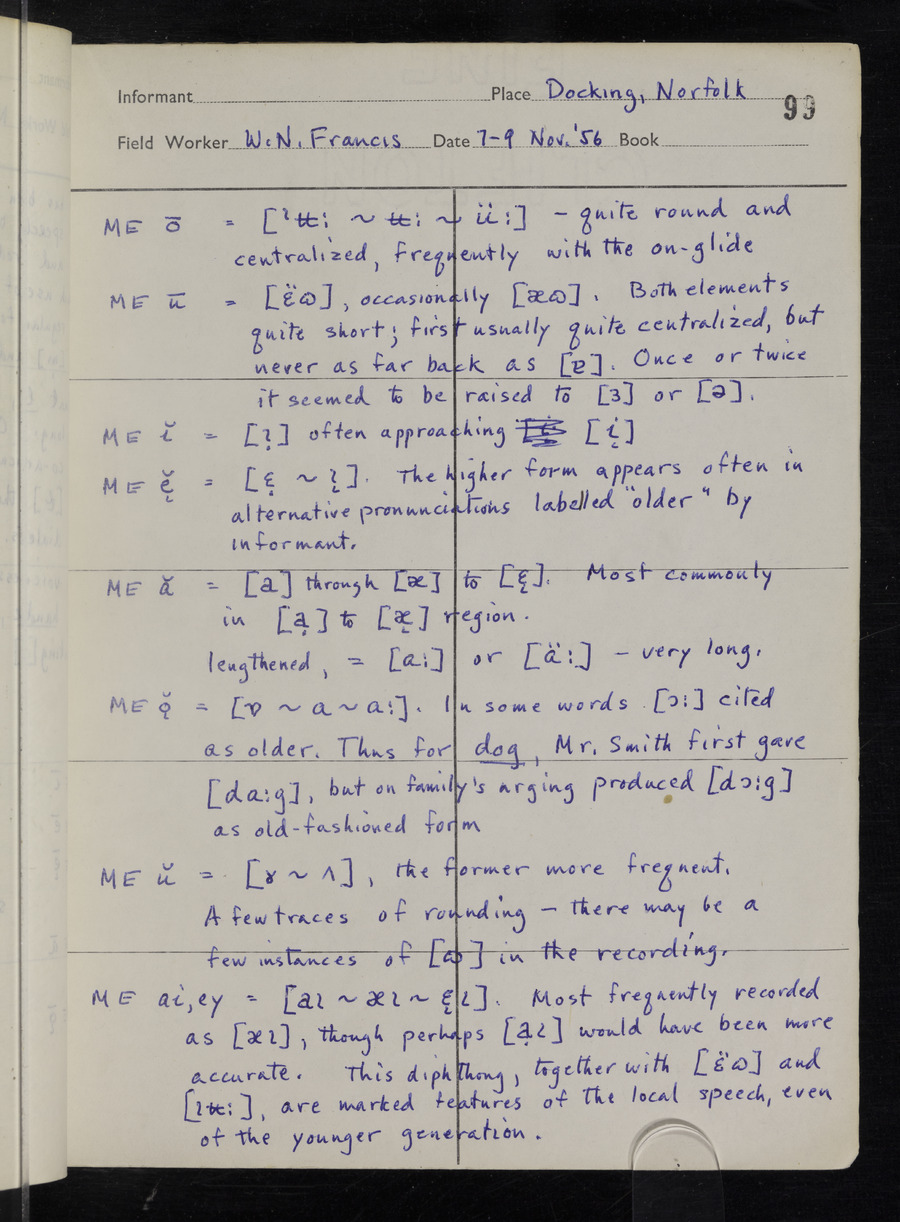 Informant Place Docking, Norfolk
99
Field Worker W.N. Francis Date 7-9 Nov. '56 Book
ME ō = [ᶦʉ: ~ ʉ: ~ ü:] - quite round and
centralized, frequently with the on-glide
ME ū = [ɛ̈ɷ], occasionally [æɷ]. Both elements
quite short; first usually quite centralized, but
never as far back as [ɐ]. Once or twice
it seemed to be raised to [ɜ] or [ə].
ME ĭ = [ɩ̣] often approaching [i̞]
ME ę̆ = [ɛ̣ ~ ɩ̞]. The higher form appears often in
alternative pronunciations labelled "older" by
informant.
ME ă = [a] through [æ] to [ɛ̞]. Most commonly
in [a̝] to [æ̞] region.
lengthened, = [a:] or [ä:] - very long.
ME ǫ̆ = [ɒ ~ ɑ ~ ɑ:]. In some words [ɔ:] cited
as older. Thus for dog, Mr. Smith first gave
[dɑ:g], but on family's urging produced [dɔ:g]
as old-fashioned form
ME ŭ = [ɤ ~ ʌ], the former more frequent.
A few traces of rounding - there may be a
few instances of [ɷ] in the recording.
ME ai, ey = [aɩ ~ æɩ ~ ɛ̞ɩ]. Most frequently recorded
as [æɩ], though perhaps [a̝ɩ] would have been more
accurate. This diphthong, together with [ɛ̈ɷ] and
[ɩʉ:], are marked features of the local speech, even
of the younger generation.